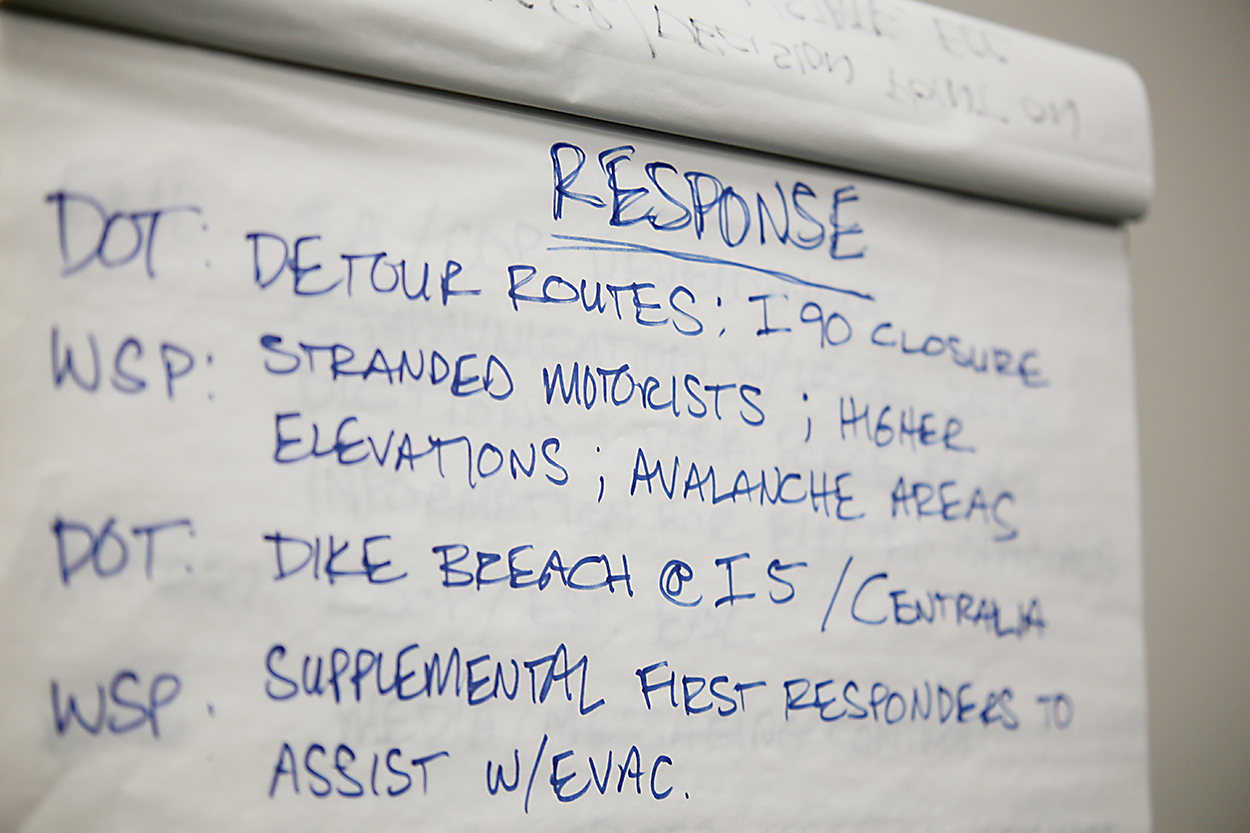 DECISION POINT ON
RESPONSE
DOT: DETOUR ROUTES; I90 CLOSURE
WSP: STRANDED MOTORISTS; HIGHER
ELEVATIONS; AVALANCHE AREAS
DOT: DIKE BREACH @ I5/CENTRALIA
WSP: SUPPLEMENTAL FIRST RESPONDERS TO
ASSIST W/EVAC.